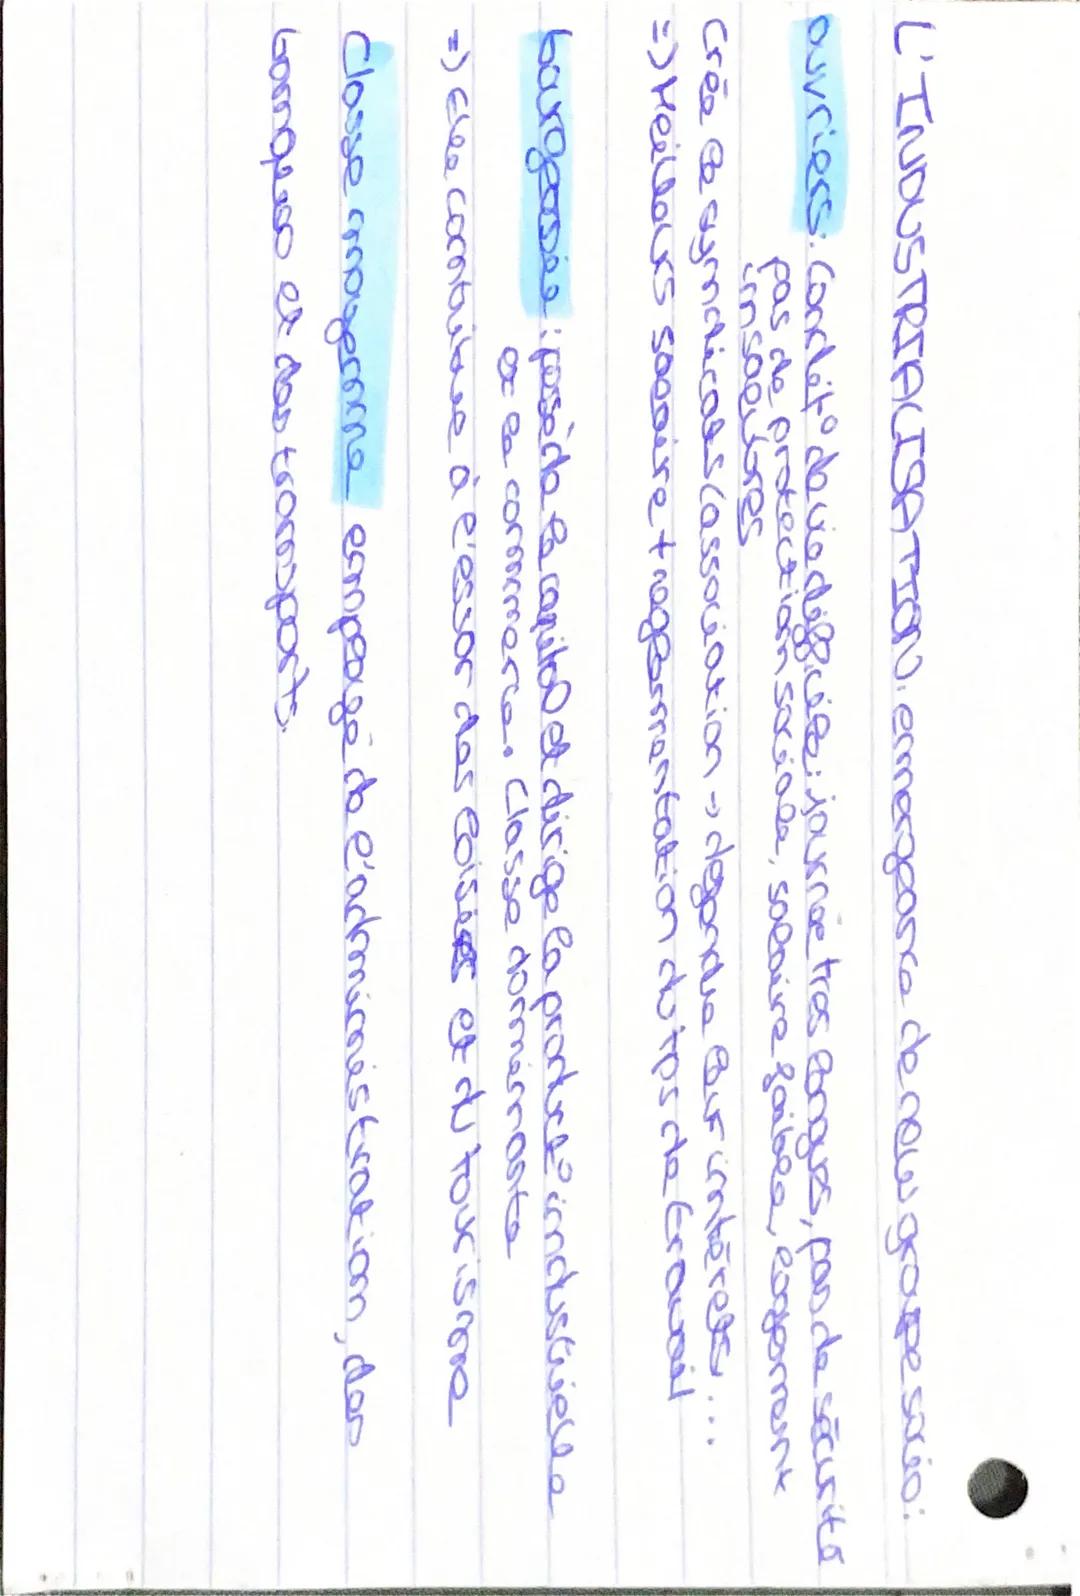 L'INDUSTRIALISATION: emergence de new groupe socio:
ouvriers: Condit° de vie difficile: journée tres longues, pas de sécurité
pas de protection sociale, salaire faible, logement
insalubres
Crée le syndicales (association → défendre leur intérets...
=> Meilleurs salaire + reglementation du tps de travail
bourgeoisie: possède le capital et dirige la product° industrielle
et le commerce. Classe dominante
=> Elle contribue à l'essor des loisirs et du tourisme
Classe moyenne employé de l'administration, des
banques et des transports.